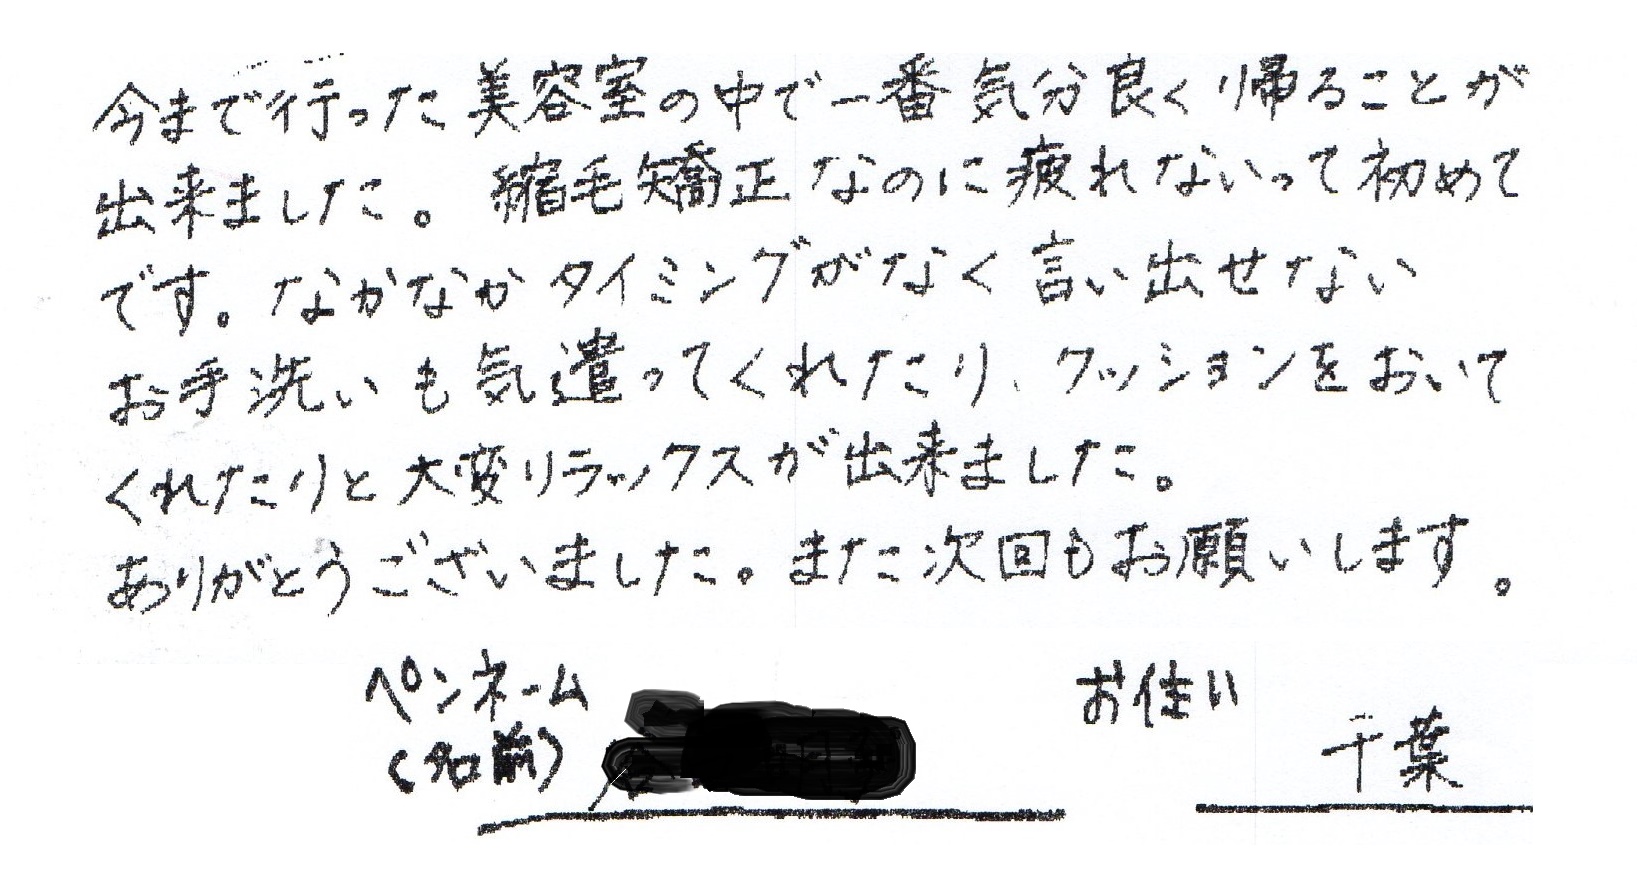 今まで行った美容室の中で一番気分良く帰ることが
出来ました。縮毛矯正なのに疲れないって初めて
です。なかなかタイミングがなく言い出せない
お手洗いも気遣ってくれたり、クッションをおいて
くれたりと大変リラックスが出来ました。
ありがとうございました。また次回もお願いします。
ペンネーム
(名前)
お住い
千葉